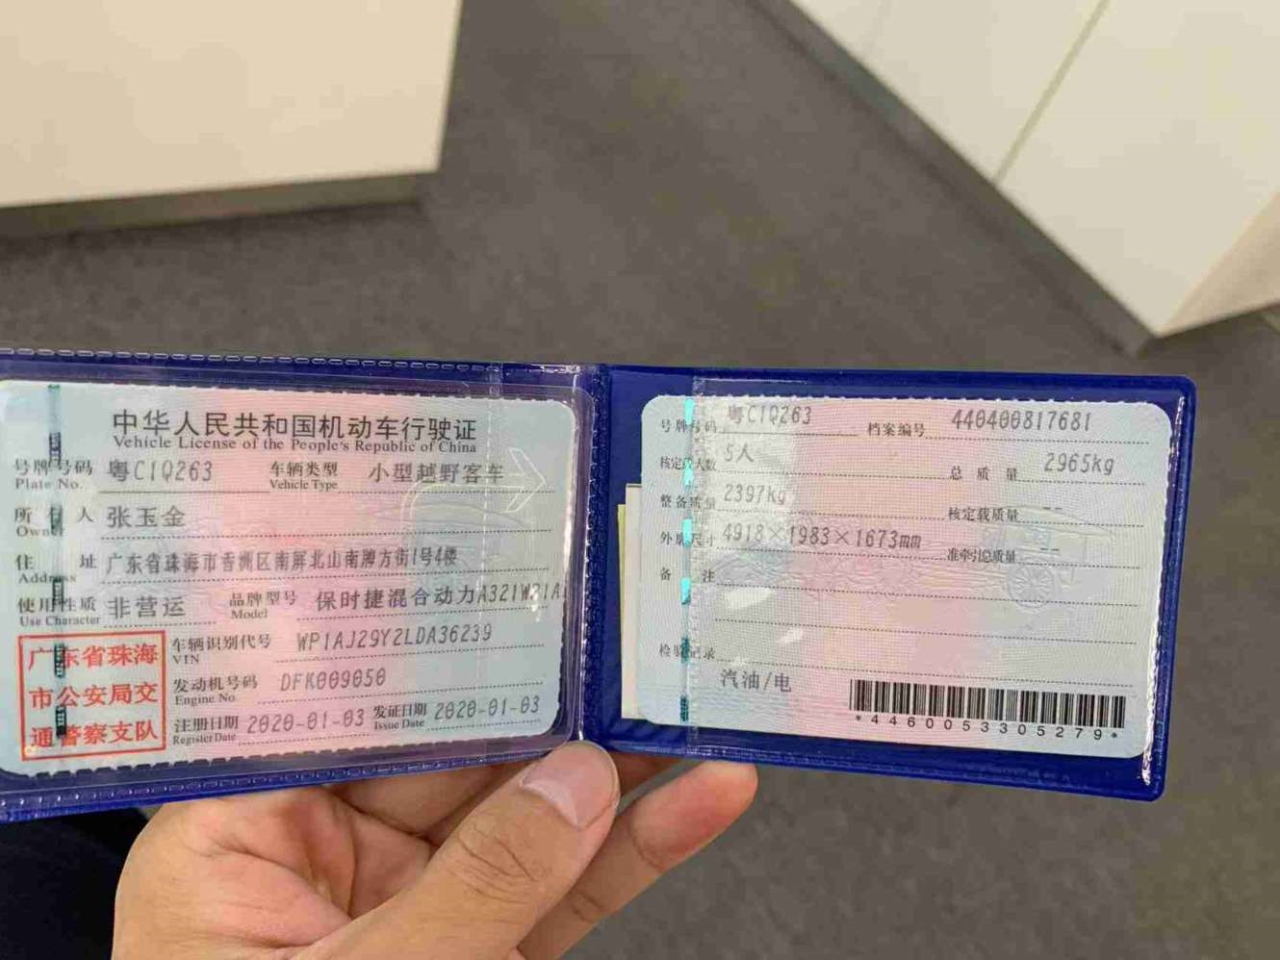 中华人民共和国机动车行驶证
Vehicle License of the People's Republic of China
号牌号码 粤C1Q263 车辆类型 小型越野客车
Plate No. Vehicle Type
所有人 张玉金
Owner
住址 广东省珠海市香洲区南屏北山南牌方街1号4楼
Address
使用性质 非营运 品牌型号 保时捷混合动力A321W21A
Use Character Model
广东省珠海
市公安局交
通警察支队
车辆识别代号 WP1AJ29Y2LDA36239
VIN
发动机号码 DFK009050
Engine No.
注册日期 2020-01-03 发证日期 2020-01-03
Register Date Issue Date
号牌号码 粤C1Q263 档案编号 440400817681
核定载人数 5人 总质量 2965kg
整备质量 2397kg 核定载质量 --
外廓尺寸 4918×1983×1673mm 准牵引总质量 --
备注
检验记录
汽油/电
*4460053305279*